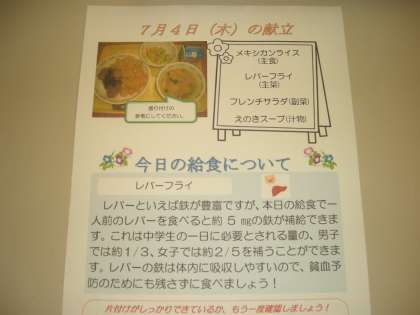 7月4日（木）の献立
メキシカンライス
(主食)
レバーフライ
(主菜)
フレンチサラダ(副菜)
えのきスープ(汁物)
盛り付けの
参考にしてください。
今日の給食について
レバーフライ
レバーといえば鉄が豊富ですが、本日の給食で一
人前のレバーを食べると約５㎎の鉄が補給できま
す。これは中学生の一日に必要とされる量の、男子
では約1/3、女子では約2/5を補うことができま
す。レバーの鉄は体内に吸収しやすいので、貧血予
防のためにも残さずに食べましょう！
片付けがしっかりできているか、もう一度確認しましょう！